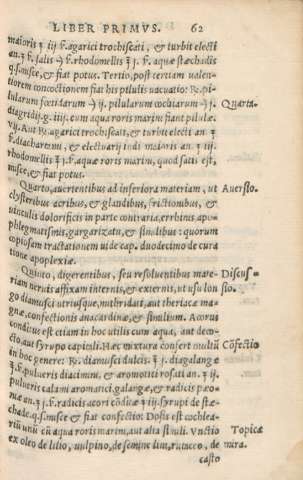 LIBER PRIMVS. 62
maioris ʒ iij ſ. agarici trochiſcati, & turbit electi
an. ʒ ſ. ſalis ſ. rhodomellis ʒ j. ſ. aquæ ſtœchadis
q. ſ. miſce, & fiat potus. Tertio, poſt tertiam ualen-
tiorem concoctionem fiat his pilulis uacuatio: ℞. pi-
lularum fœtidarum ij. pilularum cochiarum j. Quarta.
diagridij. g. iiij. cum aqua roris marini fiant pilulæ.
ij. Aut ℞. agarici trochiſcati, & turbit electi an. ʒ
ſ diacharthami, & electuarij indi maioris an. ʒ
rhodomellis ʒ j. ſ. aquæ roris marini, quod ſatis eſt,
miſce, & fiat potus.
Quarto, auertentibus ad inferiora materiam, ut Auerſio.
clyſteribus acribus, & glandibus, frictionibus, &
uinculis dolorificis in parte contraria, errhinis, apo-
phlegmatiſmis, gargarizatu, & ſimilibus: quorum
copioſam tractationem uide cap. duodecimo de cura
tione apoplexiæ.
Quinto, digerentibus, ſeu reſoluentibus mate- Diſcuſ-
riam neruis affixam internis, & externis, ut uſu lon ſio.
go diamuſci utriuſque, mithridati, aut theriacæ ma-
gnæ, confectionis anacardinæ, & ſimilium. Acorus
conditus eſt etiam in hoc utilis cum aqua, aut deco-
cto, aut ſyrupo capituli. Hæc mixtura confert multũ Cõfectio
in hoc genere: ℞. diamuſci dulcis. ʒ j. diagalangæ
ʒ ſ. pulueris diacimini, & aromatici roſati an. ʒ ij.
pulueris calami aromatici, galangæ, & radicis pæo-
niæ an. ʒ j. ſ. radicis acori cõditæ ʒ iij. ſyrupi de ſtœ-
chade q. ſ. miſce & fiat confectio: Doſis eſt cochlea-
riũ unũ cũ aqua roris marini, aut alia ſimili. Vnctio Topica
ex oleo de lilio, uulpino, de ſemine lini, rutaceo, de mira.
caſto